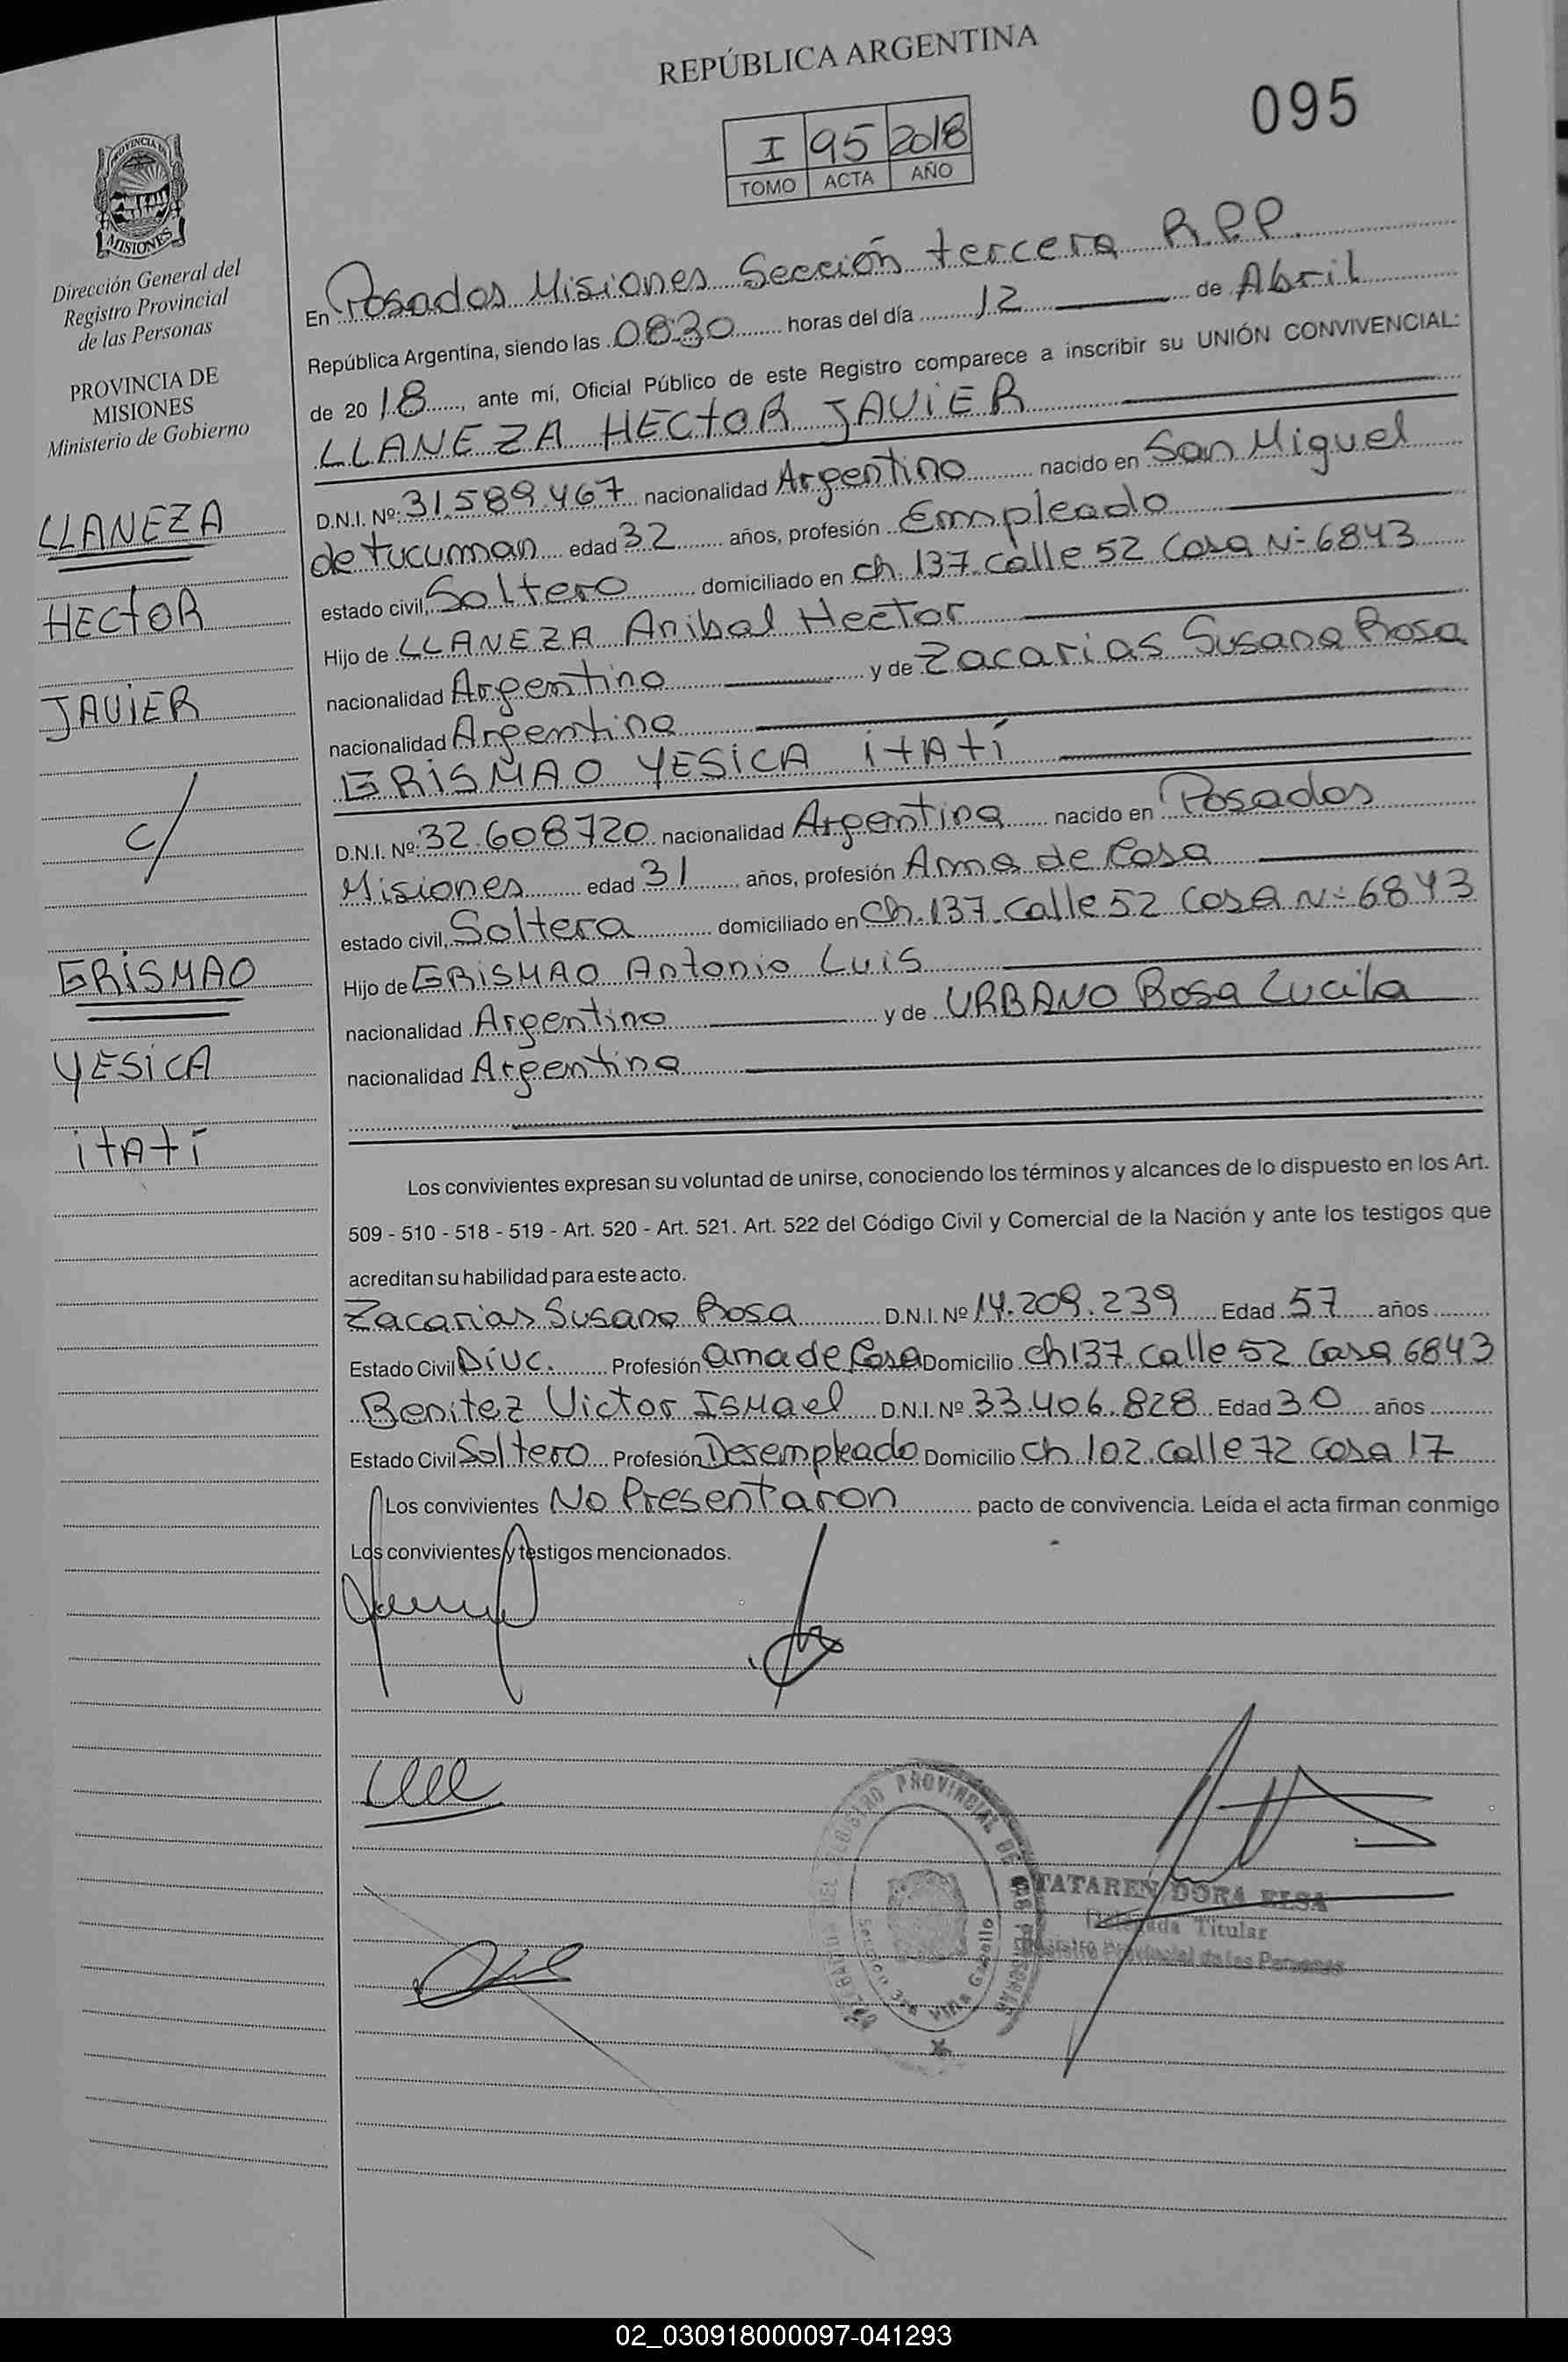 REPÚBLICA ARGENTINA
095
I 95 2018
TOMO ACTA AÑO
PROVINCIA DE
MISIONES
Dirección General del
Registro Provincial
de las Personas
PROVINCIA DE
MISIONES
Ministerio de Gobierno
LLANEZA
HECTOR
JAVIER
c/
GRISMAO
YESICA
ITATÍ
En Posadas Misiones Sección tercera R.P.P.
República Argentina, siendo las 0830 horas del día 12 de Abril
de 2018, ante mí, Oficial Público de este Registro comparece a inscribir su UNIÓN CONVIVENCIAL:
LLANEZA HECTOR JAVIER
D.N.I. Nº 31.589.467 nacionalidad Argentino nacido en San Miguel
de tucuman edad 32 años, profesión Empleado
estado civil, Soltero domiciliado en ch. 137. calle 52 Casa Nº 6843
Hijo de LLANEZA Anibal Hector
nacionalidad Argentino y de Zacarias Susana Rosa
nacionalidad Argentina
GRISMAO YESICA ITATÍ
D.N.I. Nº 32.608720 nacionalidad Argentina nacido en Posadas
Misiones edad 31 años, profesión Ama de Casa
estado civil, Soltera domiciliado en Ch. 137. calle 52 Casa Nº 6843
Hijo de GRISMAO Antonio Luis
nacionalidad Argentino y de URBANO Rosa Lucila
nacionalidad Argentina
Los convivientes expresan su voluntad de unirse, conociendo los términos y alcances de lo dispuesto en los Art.
509 - 510 - 518 - 519 - Art. 520 - Art. 521. Art. 522 del Código Civil y Comercial de la Nación y ante los testigos que
acreditan su habilidad para este acto.
Zacarias Susana Rosa D.N.I. Nº 14.209.239 Edad 57 años
Estado Civil Divc. Profesión ama de Casa Domicilio ch 137 calle 52 Casa 6843
Benitez Victor Ismael D.N.I. Nº 33.406.828 Edad 30 años
Estado Civil Soltero Profesión Desempleado Domicilio ch 102. calle 72 casa 17
Los convivientes No Presentaron pacto de convivencia. Leída el acta firman conmigo
Los convivientes y testigos mencionados.
REGISTRO PROVINCIAL DE LAS PERSONAS
Sección 3ra Villa
TATAREN DORA ELSA
Delegada Titular
Registro Provincial de las Personas
02_030918000097-041293